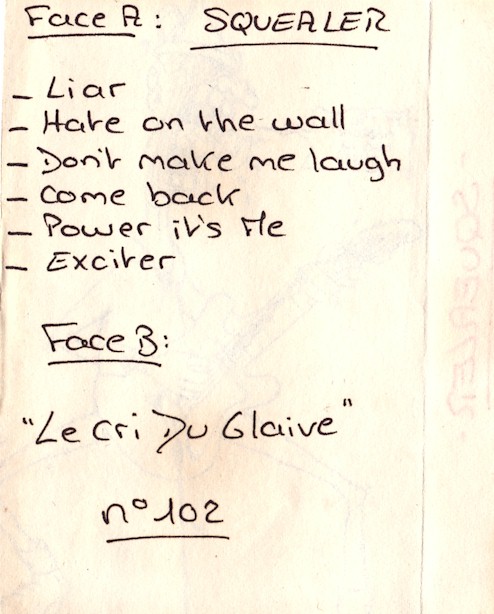 Face A: SQUEALER
- Liar
- Hate on the wall
- Don't make me laugh
- Come back
- Power it's Me
- Exciter
Face B:
"Le Cri Du Glaive"
n° 102
SQUEALER